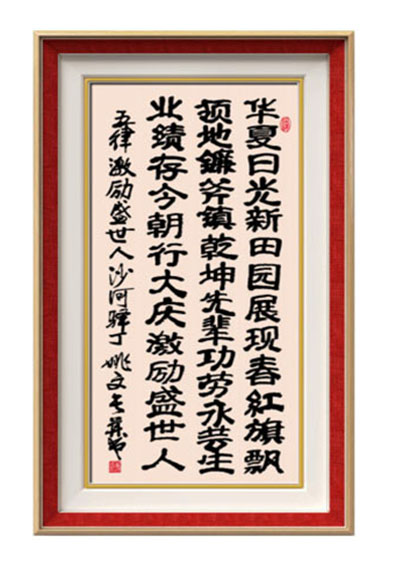 华夏日光新田园展现春紅旗飘
地鐮斧鎮乾坤先辈功劳永芸生
业績存今朝行大庆激励盛世人
五律 激励盛世人 沙河驿丁 姚文